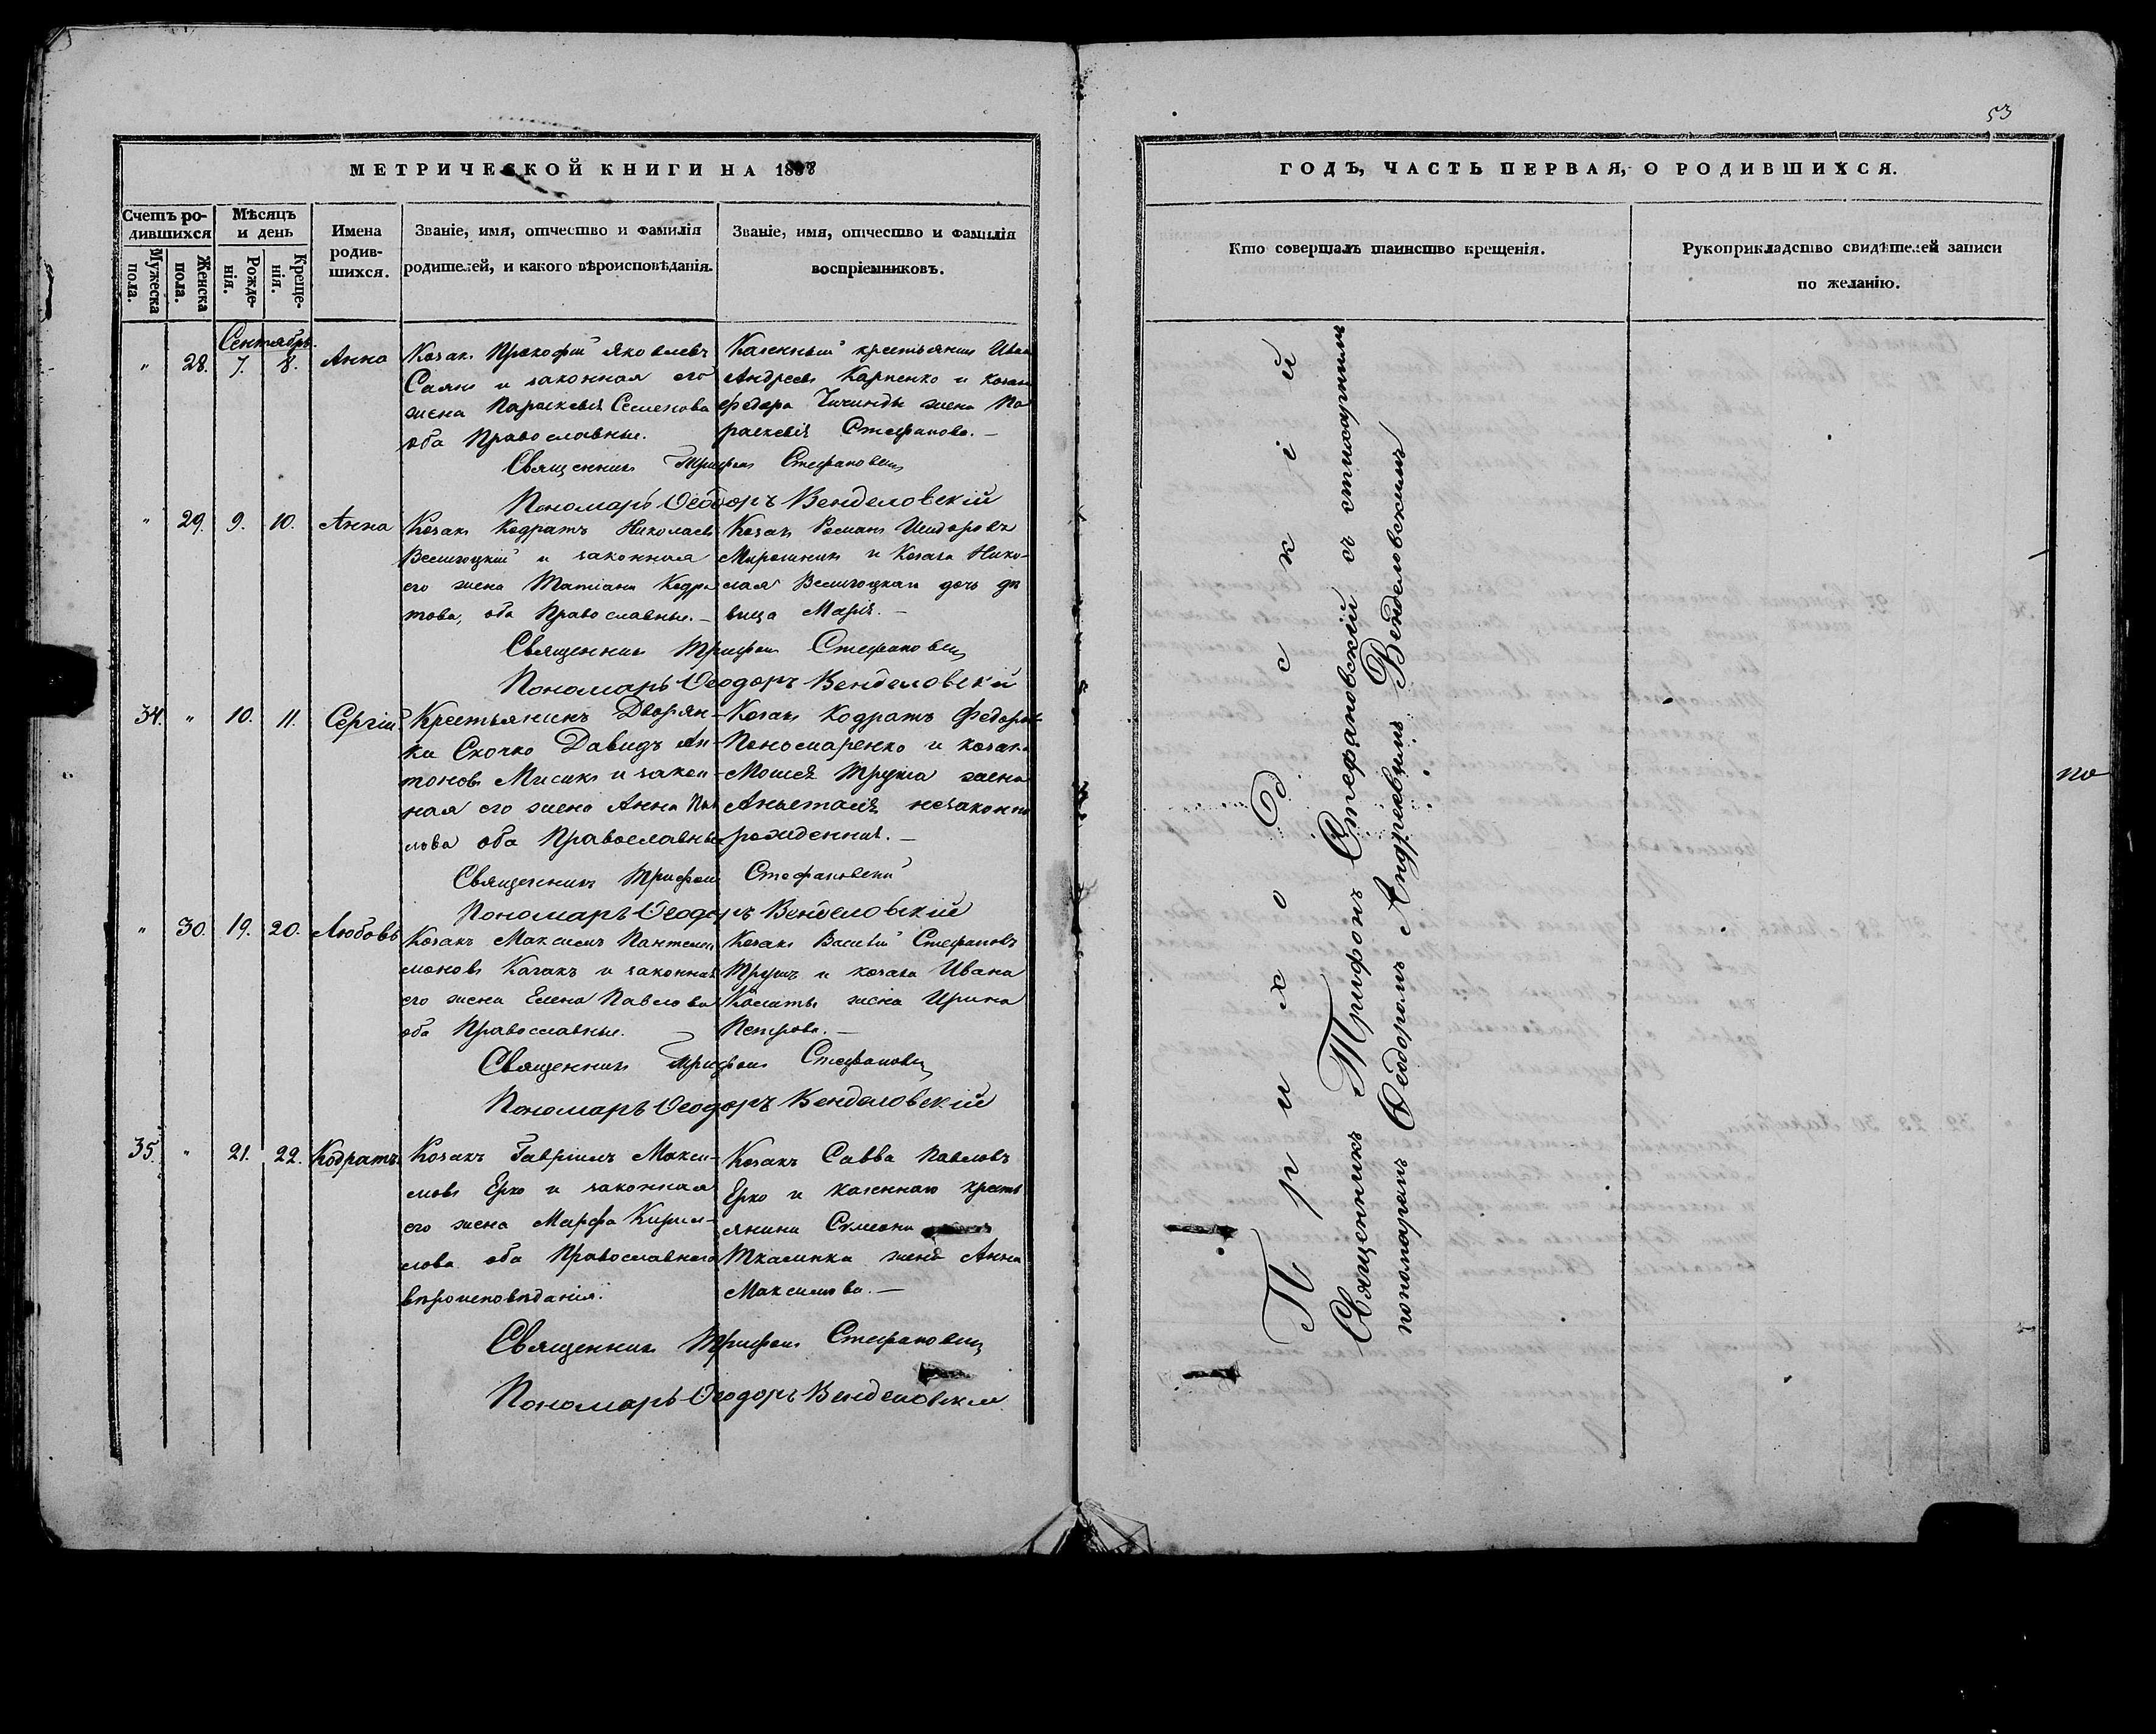 МЕТРИЧЕСКОЙ КНИГИ НА 18
Счетъ родившихся
Мужеска пола.
Женска пола.
Мѣсяцъ и день
Рожденія.
Крещенія.
Имена родившихся.
Званіе, имя, отчество и фамилія родителей, и какого вѣроисповѣданія.
Званіе, имя, отчество и фамилія воспріемниковъ.
Сентябрь.
" 28. 7. 8. Анна
Козакъ Прокофій Яковлевъ
и законная его
жена Параскевія Семенова
оба Православные.
Казенный крестьянинъ Иван
Андреевъ Карпенко и козака
Федора жена Па
раскевія Стефанова. —
Священникъ Трифонъ Стефановскій
Пономарь Ѳеодоръ Венделовскій
" 29. 9. 10. Анна
Козакъ Кодратъ Николаевъ
и законная
его жена Татіана Кодра
това, оба Православные. —
Козакъ Романъ
и Козака Нико-
лая дочь дѣ
вица Марія. —
Священникъ Трифонъ Стефановскій
Пономарь Ѳеодоръ Венделовскій
34. " 10. 11. Сергій
Крестьянинъ Дворян-
ки Скочко Давидъ Ан-
тоновъ Мисикъ и закон-
ная его жена Анна Пав
лова оба Православные
Козакъ Кодратъ Федоровъ
Пономаренко и козака
Моисея жена
Анастасія незаконно
рожденная. —
Священникъ Трифонъ Стефановскій
Пономарь Ѳеодоръ Венделовскій
" 30. 19. 20. Любовь
Козакъ Максимъ Пантелеи
моновъ Козакъ и законная
его жена Елена Павлова
оба Православные. —
Козакъ Василій Стефановъ
и козака Ивана
жена Ирина
Петрова. —
Священникъ Трифонъ Стефановскій
Пономарь Ѳеодоръ Венделовскій
35. " 21. 22. Кодратъ.
Козакъ Гавріилъ Макси-
мовъ Ерко и законная
его жена Марфа Кирил-
лова оба Православнаго
вѣроисповѣданія.
Козакъ Савва Павловъ
Ерко и казеннаго кресть
янина
жена Анна
Максимова. —
Священникъ Трифонъ Стефановскій
Пономарь Ѳеодоръ Венделовскій
53
ГОДЪ, ЧАСТЬ ПЕРВАЯ, О РОДИВШИХСЯ.
Кто совершалъ таинство крещенія.
Рукоприкладство свидѣтелей записи по желанію.
Приходскій
Священникъ Трифонъ Стефановскій съ
пономаремъ Ѳеодоромъ Андреевымъ Венделовскимъ
по